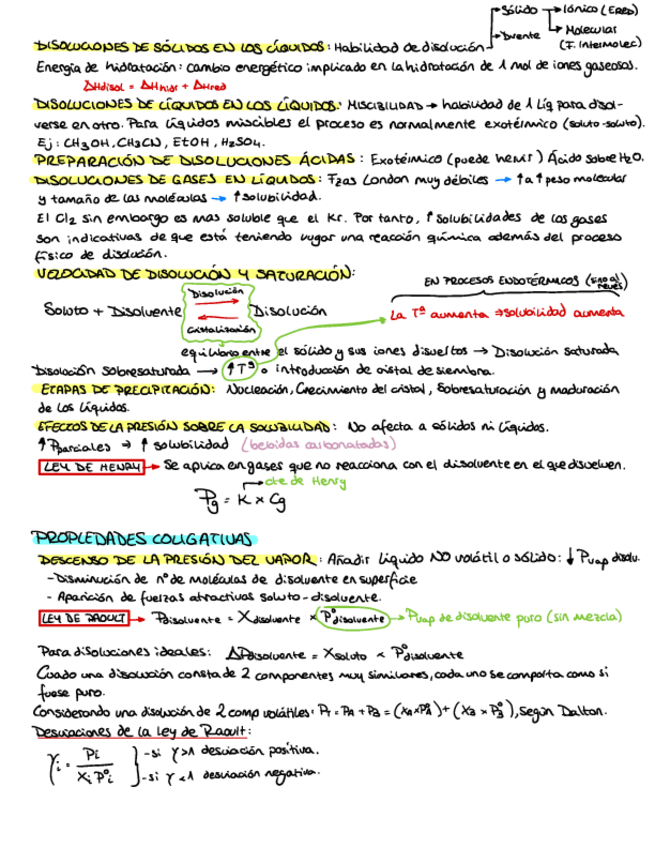 Sólido → Iónico (Ered)
Divente → Molecular
(F. Intermolec)
DISOLUCIONES DE SÓLIDOS EN LOS LÍQUIDOS: Habilidad de disolución
Energía de hidratación: cambio energético implicado en la hidratación de 1 mol de iones gaseosos.
ΔHdisol = ΔHhidr + ΔHred
DISOLUCIONES DE LÍQUIDOS EN LOS LÍQUIDOS: MISCIBILIDAD → habilidad de 1 Líq para disol-
verse en otro. Para líquidos miscibles el proceso es normalmente exotérmico (soluto-soluto).
Ej: CH3OH, CH3CN, EtOH, H2SO4.
PREPARACIÓN DE DISOLUCIONES ÁCIDAS: Exotérmico (puede hervir) Ácido sobre H2O.
DISOLUCIONES DE GASES EN LÍQUIDOS: Fzas London muy débiles → ↑a ↑peso molecular
y tamaño de las moléculas → ↑solubilidad.
El Cl2 sin embargo es mas soluble que el Kr. Por tanto, ↑solubilidades de los gases
son indicativas de que está teniendo lugar una reacción química además del proceso
físico de disolución.
VELOCIDAD DE DISOLUCIÓN Y SATURACIÓN:
EN PROCESOS ENDOTÉRMICOS (sino al revés)
Disolución
Soluto + Disolvente Disolución
Cristalización
La Tª aumenta ⇒ solubilidad aumenta
equilibrio entre el sólido y sus iones disueltos → Disolución saturada
Disolución sobresaturada → ↑Tª o introducción de cristal de siembra.
ETAPAS DE PRECIPITACIÓN: Nucleación, Crecimiento del cristal, Sobresaturación y maduración
de los líquidos.
EFECTOS DE LA PRESIÓN SOBRE LA SOLUBILIDAD: No afecta a sólidos ni líquidos.
↑Pparciales → ↑ solubilidad (bebidas carbonatadas)
LEY DE HENRY → Se aplica en gases que no reacciona con el disolvente en el que disuelven.
cte de Henry
Pg = K × Cg
PROPIEDADES COLIGATIVAS
DESCENSO DE LA PRESIÓN DEL VAPOR: Añadir líquido NO volátil o sólido: ↓Pvap disolu.
- Disminución de nº de moléculas de disolvente en superficie
- Aparición de fuerzas atractivas soluto-disolvente.
LEY DE RAOULT → Pdisolvente = Xdisolvente × P°disolvente → Pvap de disolvente puro (sin mezcla)
Para disoluciones ideales: ΔPdisolvente = Xsoluto × P°disolvente
Cuado una disolución consta de 2 componentes muy similares, cada uno se comporta como si
fuese puro.
Considerando una disolución de 2 comp volátiles: PT = PA + PB = (XA×P°A) + (XB × P°B), según Dalton.
Desviaciones de la Ley de Raoult:
γi = Pi / Xi P°i
- si γ>1 desviación positiva.
- si γ<1 desviación negativa.